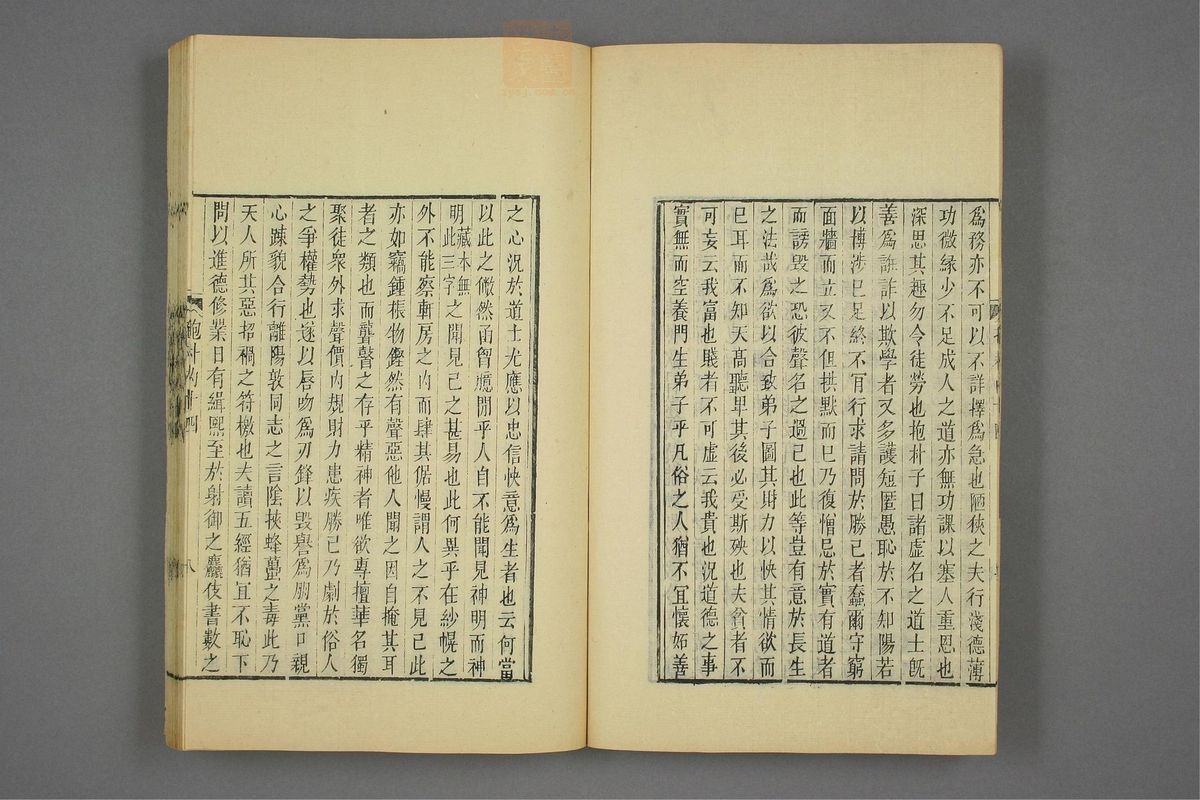 爲務亦不可以不詳擇爲急也陋狹之夫行淺德薄
功微緣少不足成人之道亦無功課以塞人重恩也
深思其趣勿令徒勞也抱朴子曰諸虛名之道士旣
善爲誑詐以欺學者又多護短匿愚恥於不知陽若
以博涉已足終不肎行求請問於勝己者蠢爾守窮
面牆而立又不但拱默而已乃復憎忌於實有道者
而謗毀之恐彼聲名之過己也此等豈有意於長生
之法哉爲欲以合致弟子圖其財力以快其情欲而
已耳而不知天高聽卑其後必受斯殃也夫貧者不
可妄云我富也賤者不可虛云我貴也況道德之事
實無而空養門生弟子乎凡俗之人猶不宜懷妬善
之心況於道士尤應以忠信快意爲生者也云何當
以此之儆然函胷臆閒乎人自不能聞見神明而神
明藏本無此三字之聞見己之甚易也此何異乎在紗幌之
外不能察軒房之內而肆其倨慢謂人之不見己此
亦如竊鍾棖物鏗然有聲惡他人聞之因自掩其耳
者之類也而聾瞽之存乎精神者唯欲專擅華名獨
聚徒衆外求聲價內規財力患疾勝己乃劇於俗人
之爭權勢也遂以脣吻爲刃鋒以毀譽爲朋黨口親
心踈貌合行離陽敦同志之言陰挾蜂蠆之毒此乃
天人所共惡招禍之符檄也夫讀五經猶宜不恥下
問以進德修業日有緝熙至於射御之麤伎書數之
抱朴內十四
八